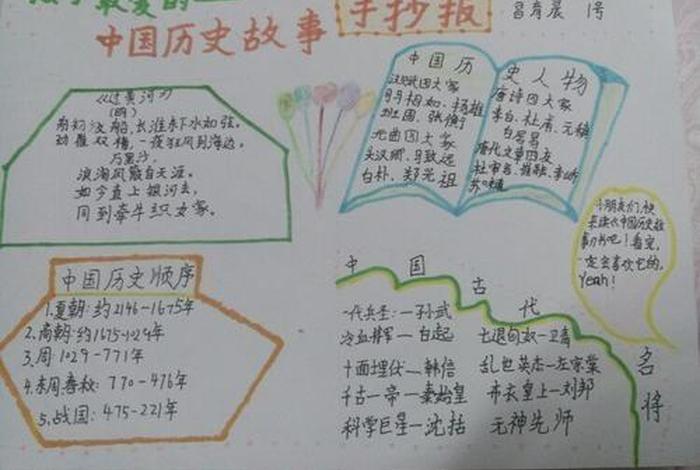 最爱的
中国历史故事
手抄报
1号
《过黄河》
(明)
双桅,一夜狂风到海边。
万里沙,
浪淘风簸自天涯。
如今直上银河去,
同到牵牛织女家。
中国历
史人物
汉赋四大家
司马相如、杨雄
班固、张衡
元曲四大家
关汉卿、马致远
白朴、郑光祖
唐诗四大家
李白、杜甫、元稹
白居易
唐代文章四友
杜审言、崔融、李峤
苏味道
小朋友们,快
来读
中国历史故
事书吧!看完,
一定会喜欢它的,
Yeah!
中国历史顺序
1.夏朝:约2146-1675年
2.商朝:约1675-1029年
3.周:1029-771年
4.东周春秋:770-476年
5.战国:475-221年
中国古代名将
一代兵圣:—孙武
冷血
—白起
士退匈奴—卫青
十面埋伏—韩信
乱世英杰—左宗棠
千古一帝—秦始皇
布衣皇上—刘邦
科学巨星—沈括
无神先师